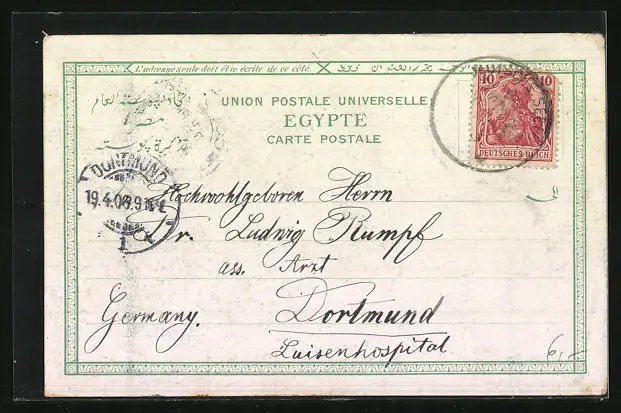 L'adresse seule doit être écrite de ce côté.
UNION POSTALE UNIVERSELLE
EGYPTE
CARTE POSTALE
10 10
DEUTSCHES REICH
DORTMUND
19.4.08.9
1
Hochwohlgeboren Herrn
Dr. Ludwig Rumpf
ass. Arzt
Germany. Dortmund
Luisenhospital
6,-